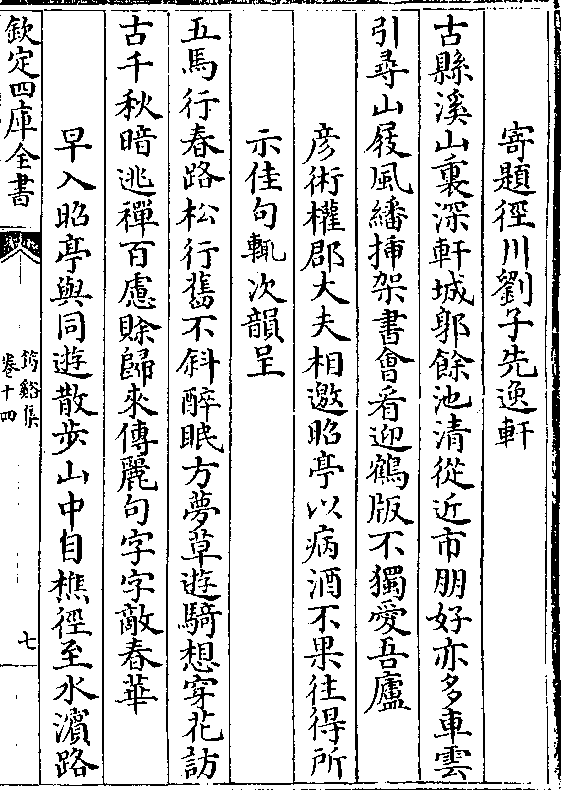 寄題徑川劉子先逸軒
古縣溪山裏深軒城郭餘池清從近市朋好亦多車雲
引尋山屐風繙插架書會看迎鶴版不獨愛吾廬
彦術權郡大夫相邀昭亭以病酒不果往得所
示佳句輒次韻呈
五馬行春路松行舊不斜醉眠方夢草遊騎想穿花訪
古千秋暗逃禪百慮賒歸來傳麗句字字敵春華
早入昭亭與同遊散步山中自樵徑至水濵路
欽定四庫全書
筠谿集
卷十四
七